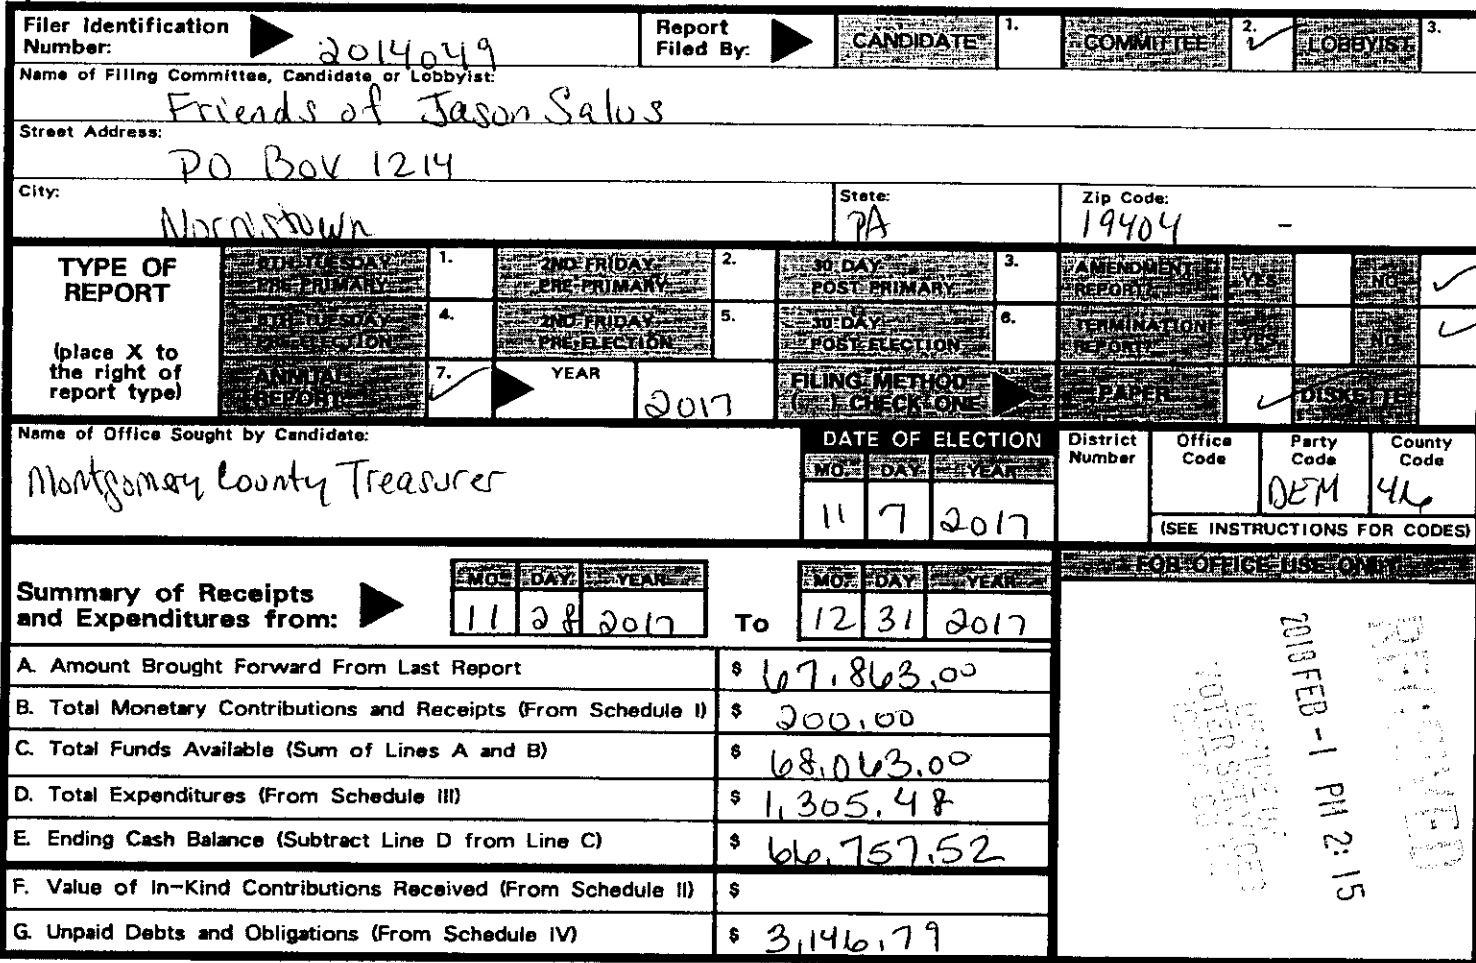 Filer Identification Number: 2014049 Report Filed By: CANDIDATE 1. COMMITTEE 2. ✓ LOBBYIST 3.
Name of Filing Committee, Candidate or Lobbyist:
Friends of Jason Salus
Street Address:
PO Box 1214
City: Norristown State: PA Zip Code: 19404 -
TYPE OF REPORT
(place X to the right of report type)
6TH TUESDAY PRE-PRIMARY 1. 2ND FRIDAY PRE-PRIMARY 2. 30 DAY POST PRIMARY 3. AMENDMENT REPORT? YES NO ✓
6TH TUESDAY PRE-ELECTION 4. 2ND FRIDAY PRE-ELECTION 5. 30 DAY POST ELECTION 6. TERMINATION REPORT? YES NO ✓
ANNUAL REPORT 7. ✓ YEAR 2017 FILING METHOD ( ) CHECK ONE PAPER ✓ DISKETTE
Name of Office Sought by Candidate:
Montgomery County Treasurer
DATE OF ELECTION
MO. DAY YEAR
11 7 2017
District Number Office Code Party Code County Code
DEM 46
(SEE INSTRUCTIONS FOR CODES)
Summary of Receipts and Expenditures from:
MO. DAY YEAR
11 28 2017
To
MO. DAY YEAR
12 31 2017
FOR OFFICE USE ONLY
A. Amount Brought Forward From Last Report $ 67,863.00
B. Total Monetary Contributions and Receipts (From Schedule I) $ 200.00
C. Total Funds Available (Sum of Lines A and B) $ 68,063.00
D. Total Expenditures (From Schedule III) $ 1,305.48
E. Ending Cash Balance (Subtract Line D from Line C) $ 66,757.52
F. Value of In-Kind Contributions Received (From Schedule II) $
G. Unpaid Debts and Obligations (From Schedule IV) $ 3,146.79
RECEIVED
2018 FEB -1 PM 2:15
VOTER SERVICES